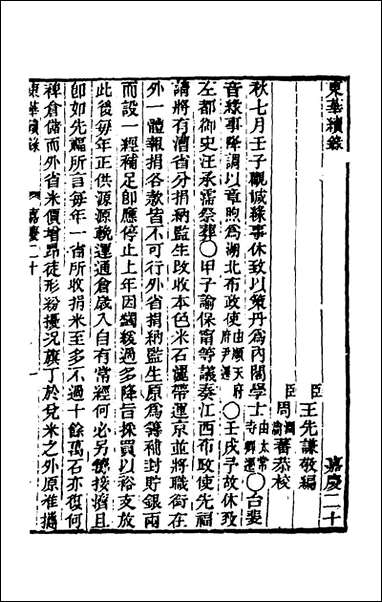 東華續錄
嘉慶二十
臣王先謙敬編
臣周潤蕃恭校
秋七月壬子觀誠緣事休致以策丹為內閣學士由太常寺卿遷〇台斐
音緣事降調以章煦為湖北布政使由順天府府尹遷〇壬戌予故休致
左都御史汪承霈祭葬〇甲子諭保甯等議奏江西布政使先福
請將有漕省分捐納監生改收本色米石灑帶運京並將職銜在
外一體報捐各款皆不可行外省捐納監生原為籌補封貯銀兩
而設一經補足即應停止上年因蠲緩過多降旨採買以裕支放
此後每年正供源源輓運通倉廒入自有常經何必另籌接濟且
即如先福所言每年一省所收捐米至多不過十餘萬石亦復何
裨倉儲而外省米價增昂徒形紛擾況旗丁於兌米之外原准攜
東華續錄 嘉慶二十 一